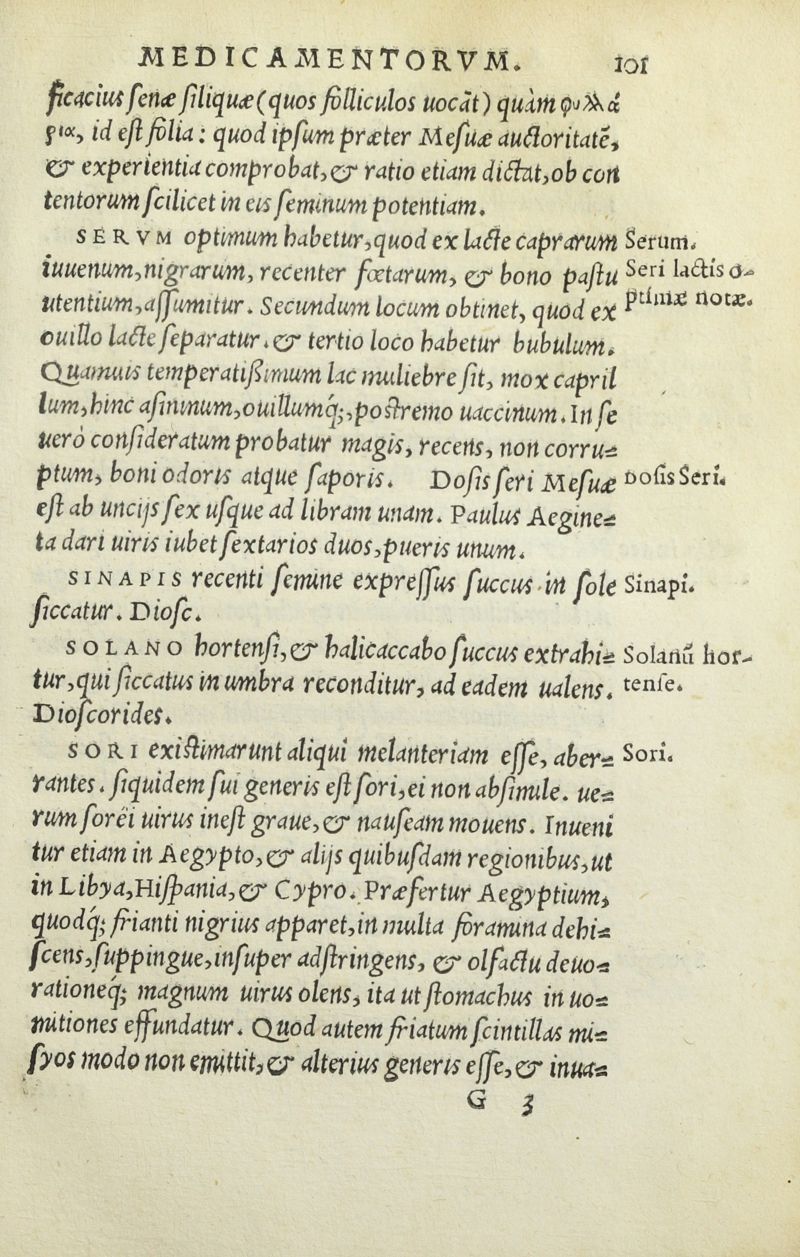 MEDICAMENTORVM. 101
ficacius senæ siliquæ (quos folliculos uocāt) quàm φυλλά
ρια, id est folia: quod ipsum præter Mesuæ auctoritatē,
& experientia comprobat, & ratio etiam dictat, ob con
tentorum scilicet in eis seminum potentiam.
SERVM optimum habetur, quod ex lacte caprarum Serum.
iuuenum, nigrarum, recenter fœtarum, & bono pastu Seri lactis o-
utentium, assumitur. Secundum locum obtinet, quod ex ptimæ notæ.
ouillo lacte separatur. & tertio loco habetur bubulum.
Quamuis temperatißimum lac muliebre sit, mox capril
lum, hinc asininum, ouillumq;, postremo uaccinum. In se
uerò consideratum probatur magis, recens, non corru=
ptum, boni odoris atque saporis. Dosis seri Mesuæ Dosis Seri.
est ab uncijs sex usque ad libram unam. Paulus Aegine=
ta dari uiris iubet sextarios duos, pueris unum.
SINAPIS recenti semine expressus succus in sole Sinapi.
siccatur. Diosc.
SOLANO hortensi, & halicaccabo succus extrahi= Solanū hor-
tur, qui siccatus in umbra reconditur, ad eadem ualens. tense.
Dioscorides.
SORI existimarunt aliqui melanteriam esse, aber= Sori.
rantes. siquidem sui generis est sori, ei non absimile. ue=
rum sorëi uirus inest graue, & nauseam mouens. Inueni
tur etiam in Aegypto, & alijs quibusdam regionibus, ut
in Libya, Hispania, & Cypro. Præfertur Aegyptium,
quodq; frianti nigrius apparet, in multa foramina dehi=
scens, suppingue, insuper adstringens, & olfactu deuo=
rationeq; magnum uirus olens, ita ut stomachus in uo=
mitiones effundatur. Quod autem friatum scintillas mi=
syos modo non emittit, & alterius generis esse, & inua=
G 3